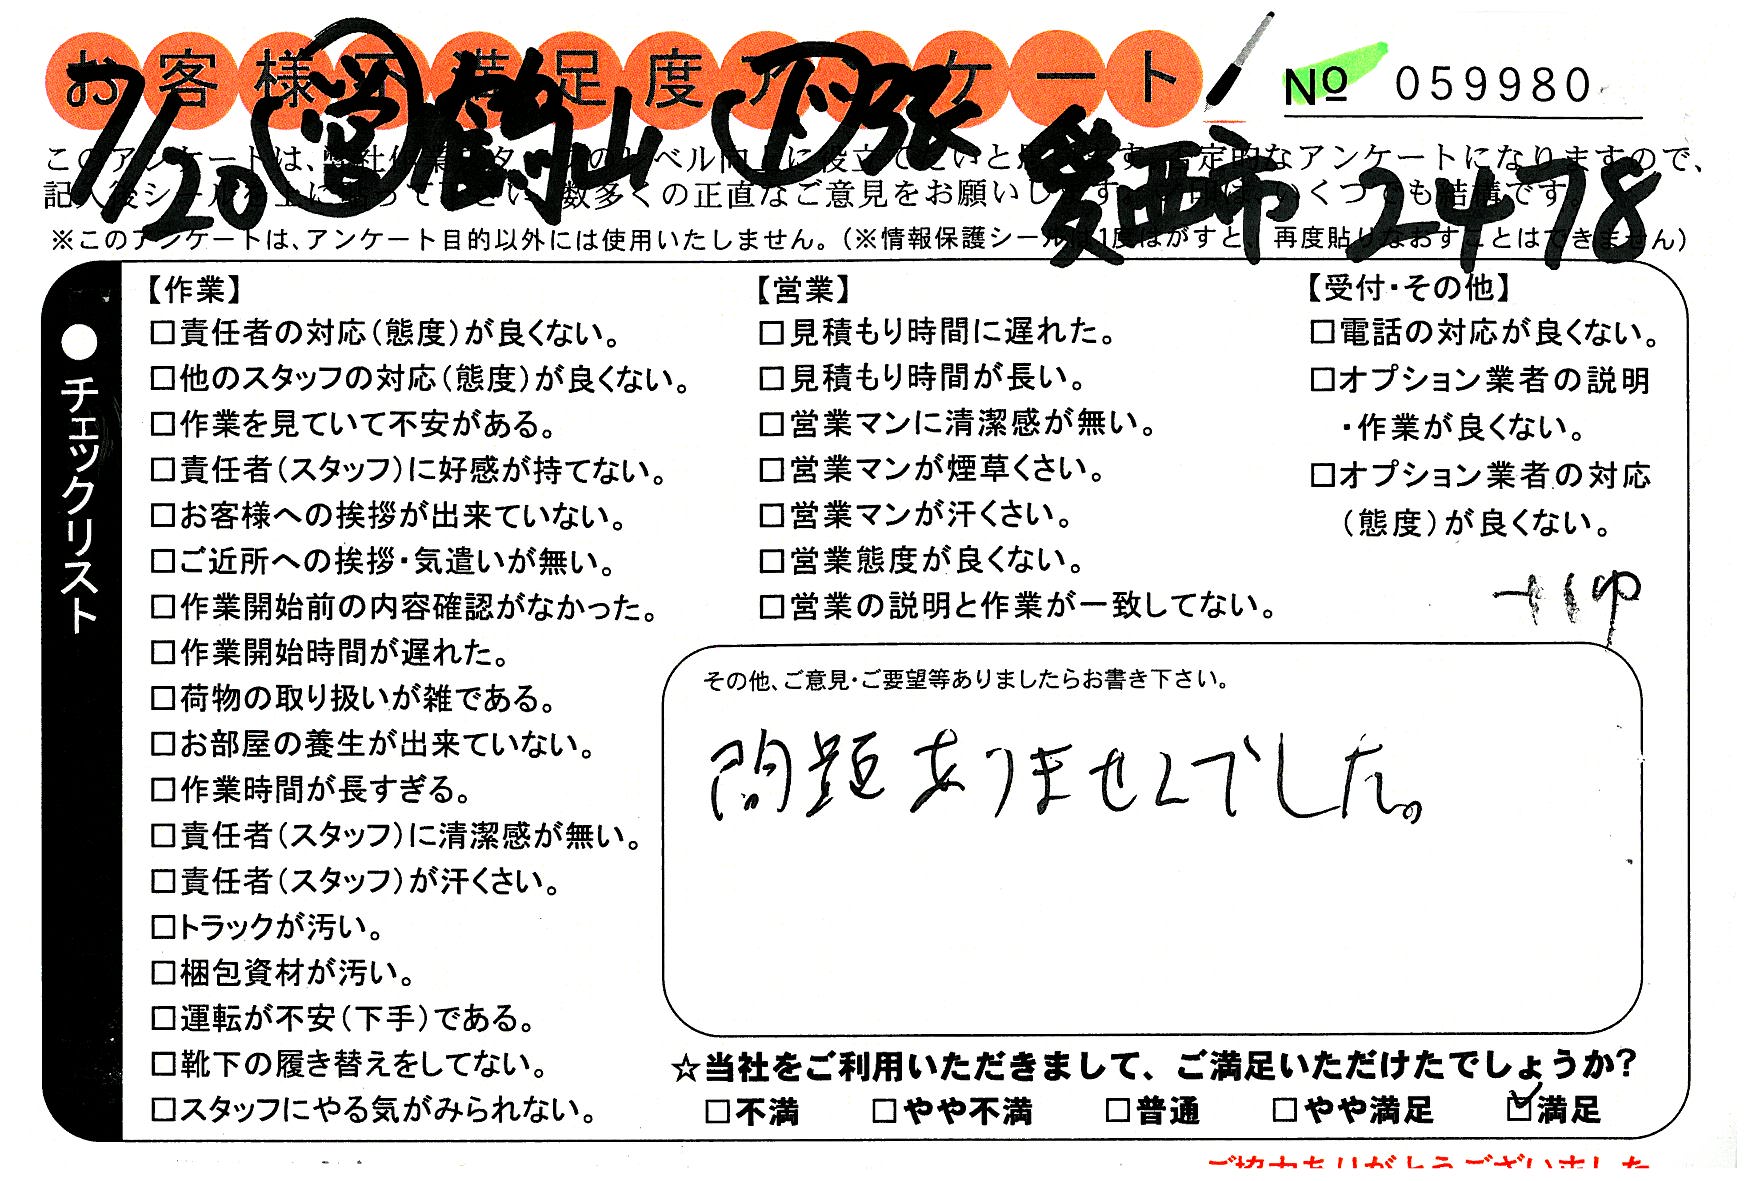 お客様不満足度アンケート
No 059980
7/20 営 鶴山 下 張 愛西市 2478
このアンケートは、弊社作業スタッフのレベル向上に役立てたいと思います。否定的なアンケートになりますので、
記入後シールを上に貼って下さい。数多くの正直なご意見をお願いします。
いくつでも結構です。
※このアンケートは、アンケート目的以外には使用いたしません。(※情報保護シールは1度はがすと、再度貼りなおすことはできません)
●チェックリスト
【作業】
□責任者の対応(態度)が良くない。
□他のスタッフの対応(態度)が良くない。
□作業を見ていて不安がある。
□責任者(スタッフ)に好感が持てない。
□お客様への挨拶が出来ていない。
□ご近所への挨拶・気遣いが無い。
□作業開始前の内容確認がなかった。
□作業開始時間が遅れた。
□荷物の取り扱いが雑である。
□お部屋の養生が出来ていない。
□作業時間が長すぎる。
□責任者(スタッフ)に清潔感が無い。
□責任者(スタッフ)が汗くさい。
□トラックが汚い。
□梱包資材が汚い。
□運転が不安(下手)である。
□靴下の履き替えをしてない。
□スタッフにやる気がみられない。
【営業】
□見積もり時間に遅れた。
□見積もり時間が長い。
□営業マンに清潔感が無い。
□営業マンが煙草くさい。
□営業マンが汗くさい。
□営業態度が良くない。
□営業の説明と作業が一致してない。
【受付・その他】
□電話の対応が良くない。
□オプション業者の説明
・作業が良くない。
□オプション業者の対応
(態度)が良くない。
その他、ご意見・ご要望等ありましたらお書き下さい。
問題ありませんでした。
☆当社をご利用いただきまして、ご満足いただけたでしょうか?
□不満 □やや不満 □普通 □やや満足 ☑満足
ご協力ありがとうございました